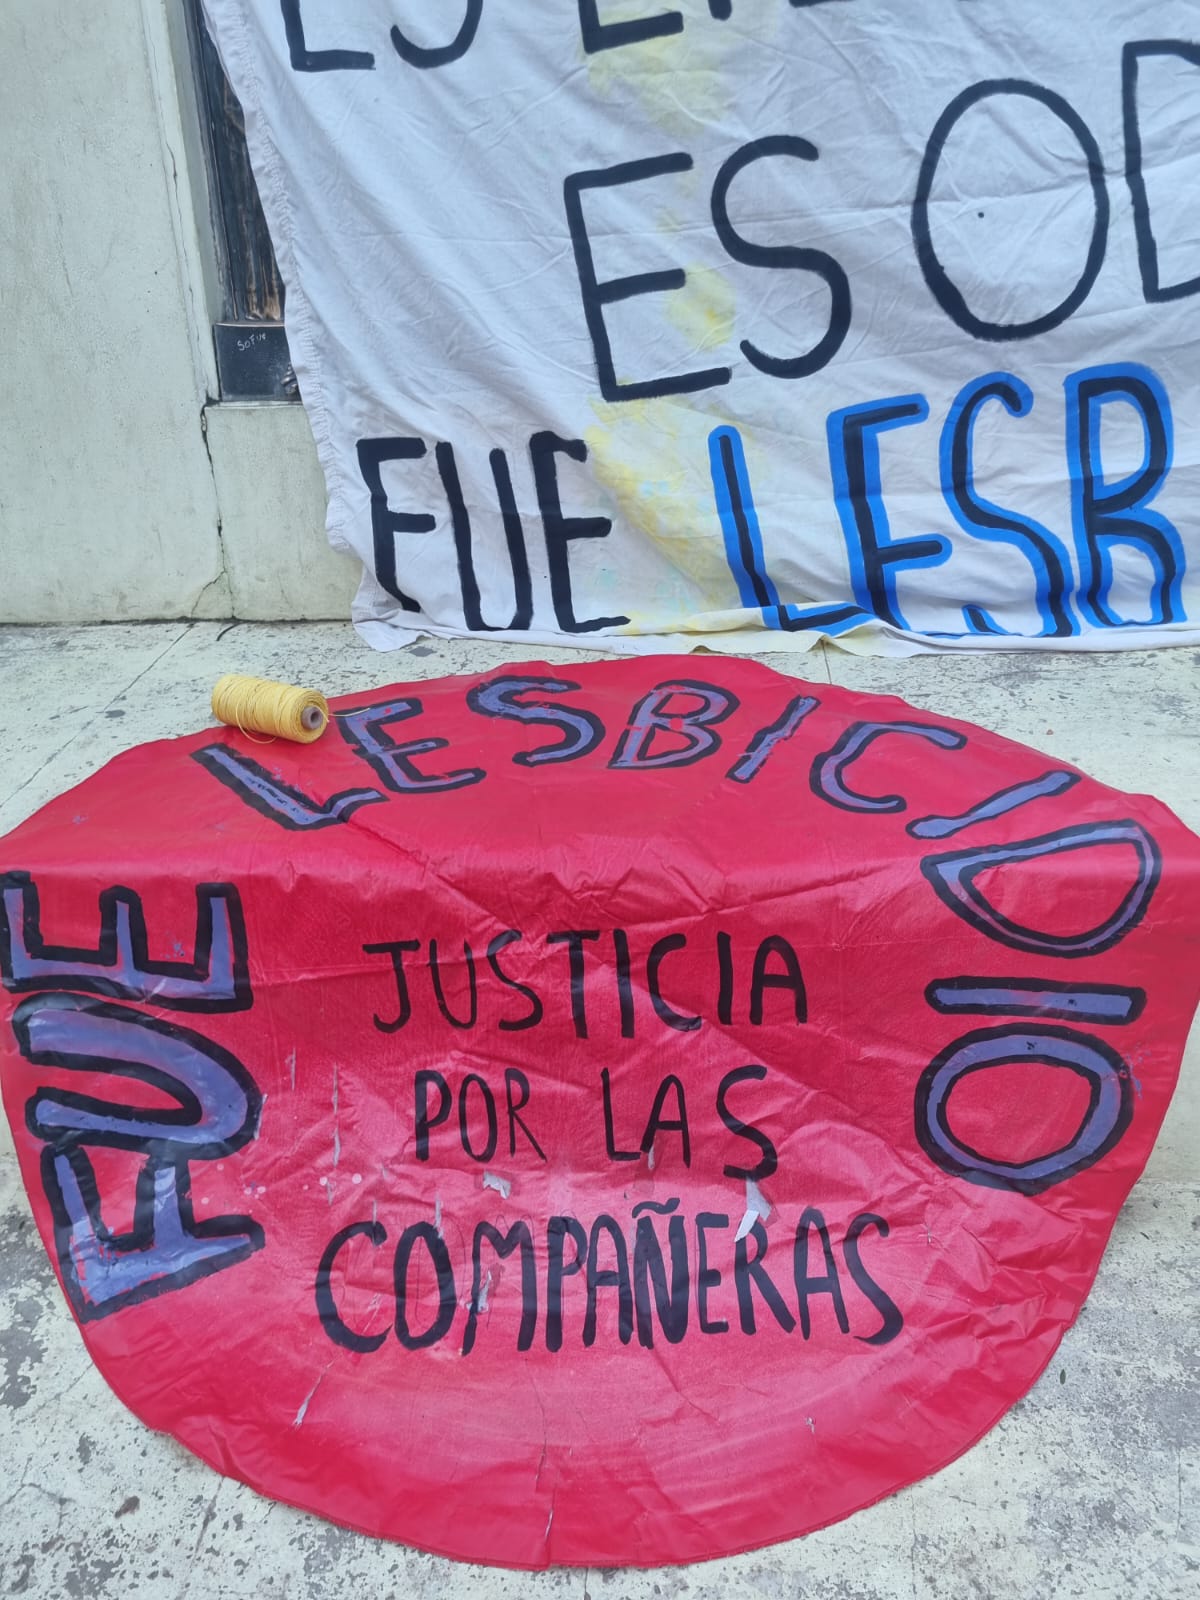 ES OD
FUE LESB
FUE LESBICIDIO
JUSTICIA
POR LAS
COMPAÑERAS